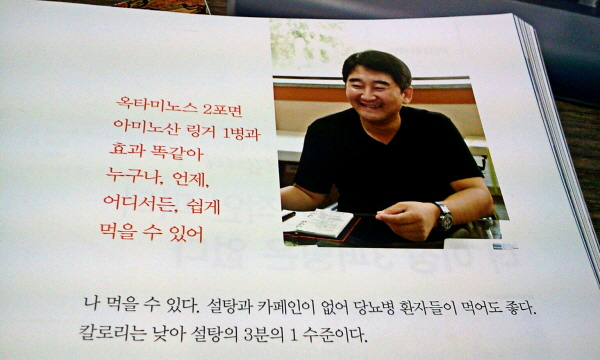 옥타미노스 2포면
아미노산 링거 1병과
효과 똑같아
누구나, 언제,
어디서든, 쉽게
먹을 수 있어
나 먹을 수 있다. 설탕과 카페인이 없어 당뇨병 환자들이 먹어도 좋다.
칼로리는 낮아 설탕의 3분의 1 수준이다.